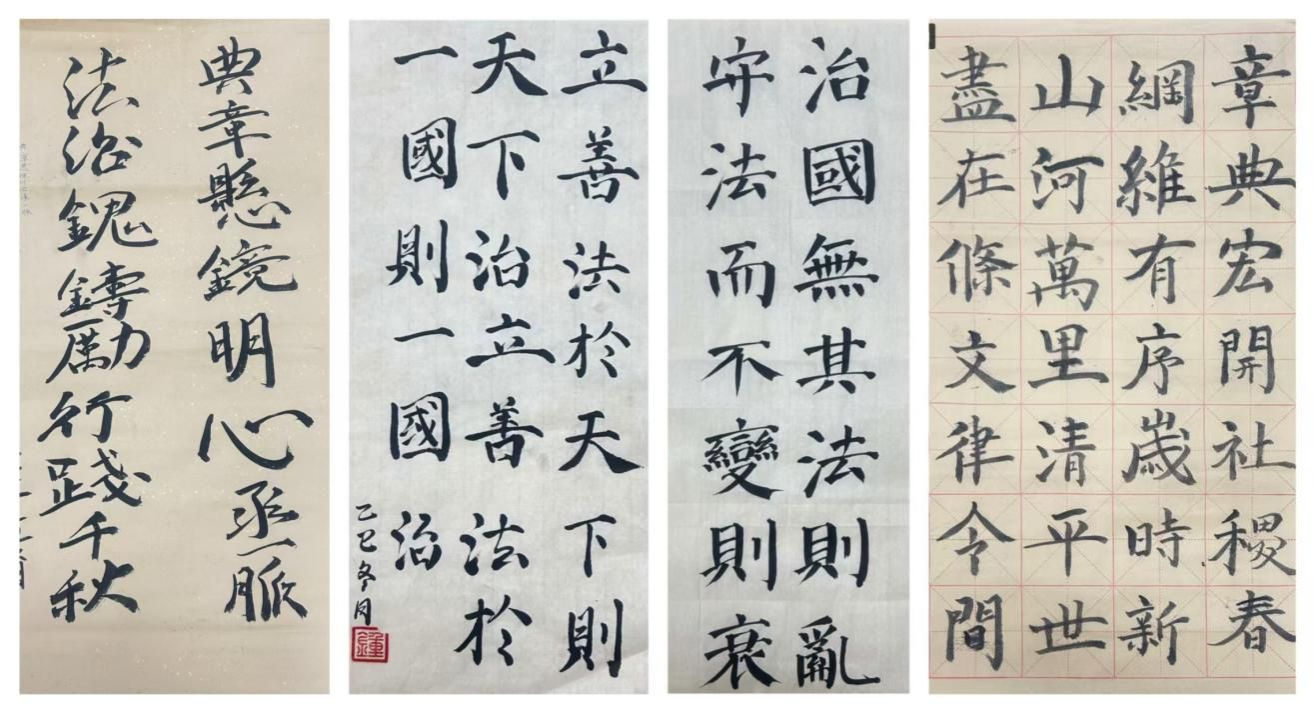 典章懸鏡明心承一脈
法治鑄勵行踐千秋
立善法於天下則
天下治立善法於
一國則一國治
乙巳冬月
鍾
治國無其法則亂
守法而不變則衰
章典宏開社稷春
綱維有序歲時新
山河萬里清平世
盡在條文律令間